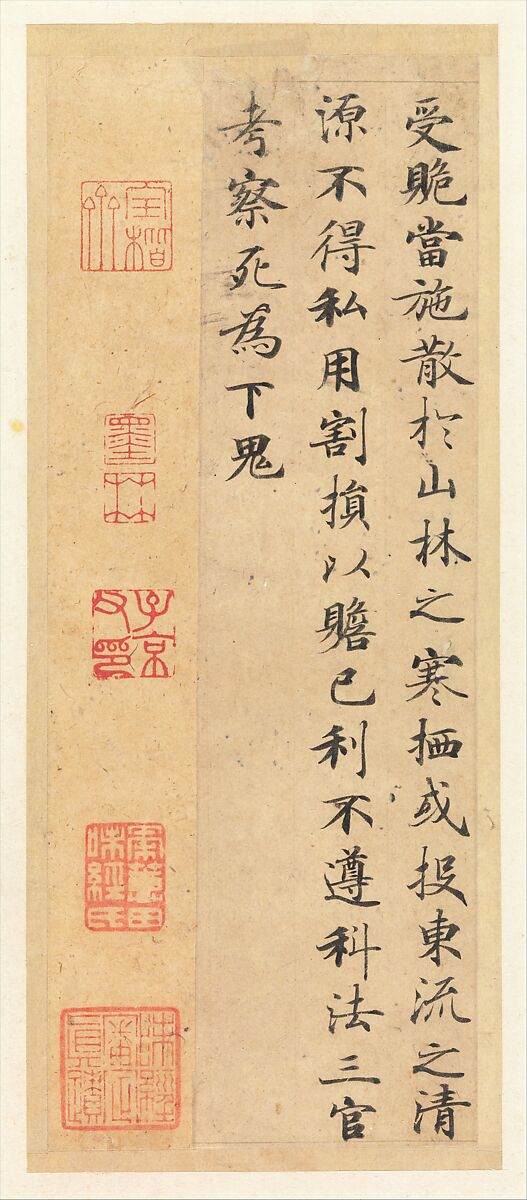 受䞈當施散於山林之寒栖或投東流之清
源不得私用割損以贍己利不遵科法三官
考察死為下鬼
墨林
子京父印